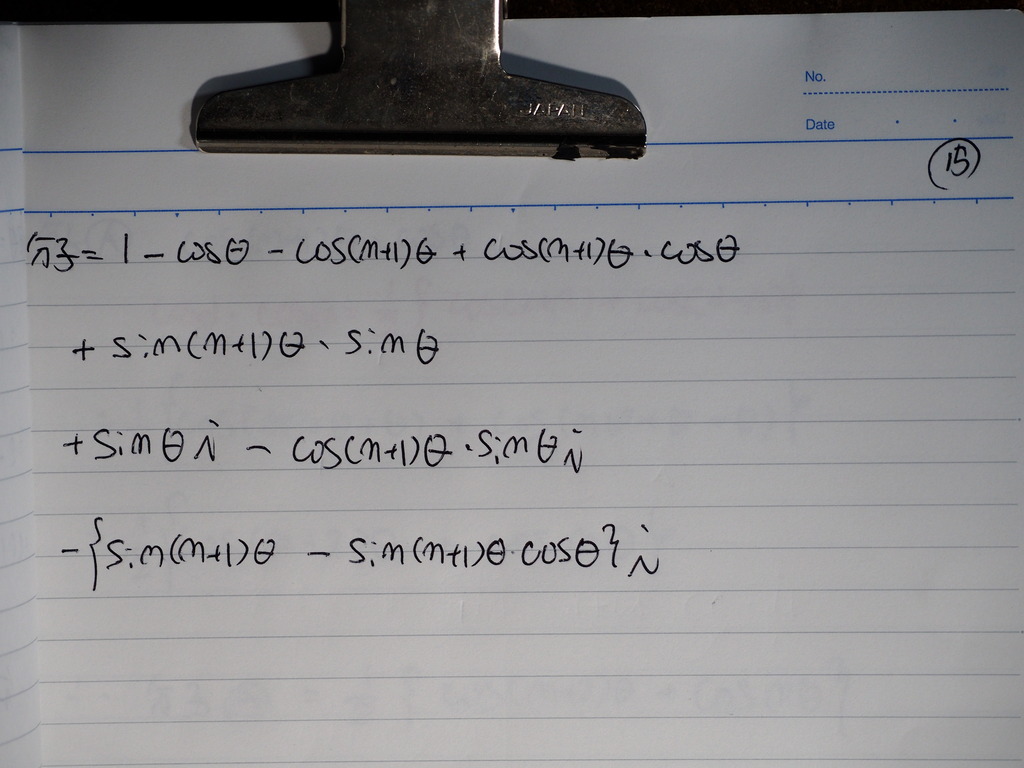 JAPAN
No.
Date
⑮
分子 = 1 - cosθ - cos(n+1)θ + cos(n+1)θ・cosθ
+ sin(n+1)θ・sinθ
+ sinθi - cos(n+1)θ・sinθi
-{sin(n+1)θ - sin(n+1)θ・cosθ}i